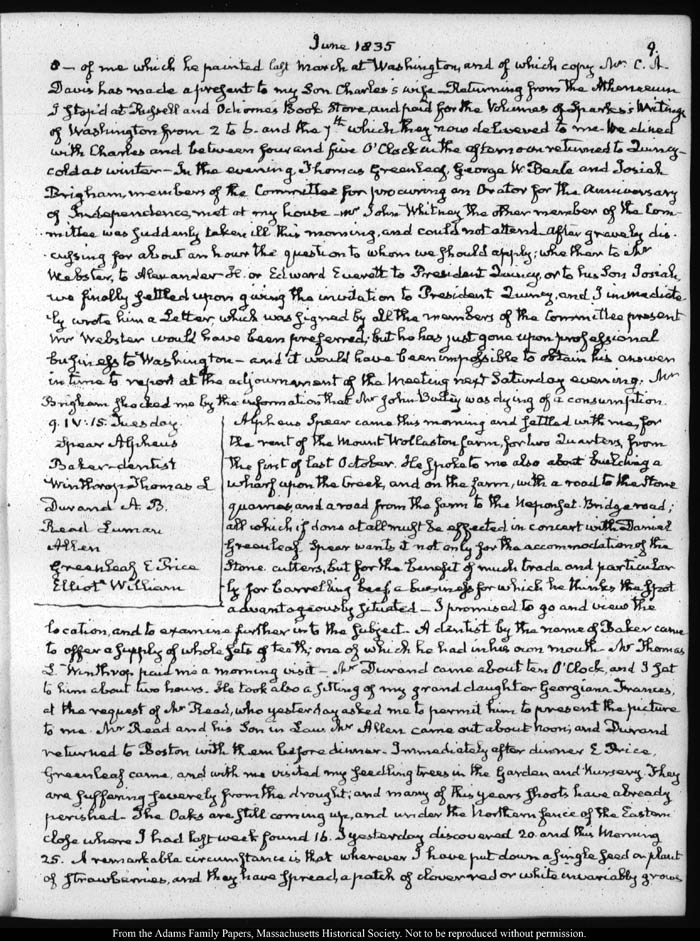 June 1835
9.
8 — of me which he painted last March at Washington, and of which copy Mr. C. A.
Davis has made a present to my Son Charles's wife — Returning from the Atheneum
I stop'd at Russell and Odiorne's Book Store, and paid for the Volumes of Sparks's Writings
of Washington from 2 to 6. and the 7th which they now delivered to me. We dined
with Charles and between four and five O'Clock in the afternoon returned to Quincy —
cold as winter — In the evening, Thomas Greenleaf, George W. Beale and Josiah
Brigham, members of the Committee for procuring an Orator for the Anniversary
of Independence, met at my house — Mr John Whitney the other member of the Com-
mittee was suddenly taken ill this morning, and could not attend — After gravely dis-
cussing for about an hour the question to whom we should apply; whether to Mr
Webster, to Alexander H. or Edward Everett to President Quincy, or to his Son Josiah,
we finally settled upon giving the invitation to President Quincy, and I immediate-
ly wrote him a Letter, which was signed by all the members of the Committee present
Mr Webster would have been preferred; but he has just gone upon professional
business to Washington — and it would have been impossible to obtain his answer
in time to report at the adjournment of the Meeting next Saturday evening. Mr
Brigham shocked me by the information that Mr John Bailey was dying of a consumption.
9. IV:15. Tuesday.
Spear Alpheus
Baker — dentist
Winthrop Thomas L
Durand A. B.
Read Luman
Allen
Greenleaf E Price
Elliot William
Alpheus Spear came this morning and settled with me, for
the rent of the Mount Wollaston farm, for two Quarters, from
the first of last October. He spoke to me also about building a
wharf upon the Creek, and on the farm, with a road to the Stone
quarries, and a road from the farm to the Neponset Bridge road;
all which if done at all must be effected in concert with Daniel
Greenleaf. Spear wants it not only for the accommodation of the
Stone cutters, but for the benefit of much trade and particular-
ly for barrelling beef, a business for which he thinks the spot
advantageously situated — I promised to go and view the
location, and to examine further into the subject — A dentist by the name of Baker came
to offer a supply of whole sets of teeth; one of which he had in his own mouth — Mr Thomas
L. Winthrop paid me a morning visit — Mr Durand came about ten O'Clock, and I sat
to him about two hours. He took also a sitting of my grand daughter Georgiana Frances,
at the request of Mr Read, who yesterday asked me to permit him to present the picture
to me. Mr Read and his Son in Law Mr Allen came out about noon; and Durand
returned to Boston with them before dinner — Immediately after dinner E Price
Greenleaf came, and with me visited my seedling trees in the Garden and Nursery. They
are suffering severely from the drought; and many of this years shoots have already
perished — The Oaks are still coming up, and under the Northern fence of the Eastern
close where I had last week found 16. I yesterday discovered 20. and this Morning
25. A remarkable circumstance is that wherever I have put down a single seed or plant
of strawberries, and they have spread, a patch of clover red or white invariably grows
From the Adams Family Papers, Massachusetts Historical Society. Not to be reproduced without permission.